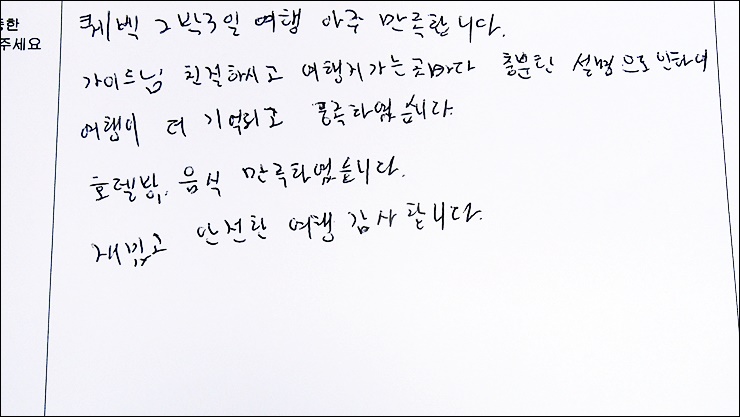 퀘벡 2박3일 여행 아주 만족합니다.
한
주세요
가이드님 친절하시고 여행지가는곳마다 충분한 설명으로 인하여
여행이 더 기억되고 풍족하였습니다.
호텔방, 음식 만족하였습니다.
재밌고 안전한 여행 감사합니다.